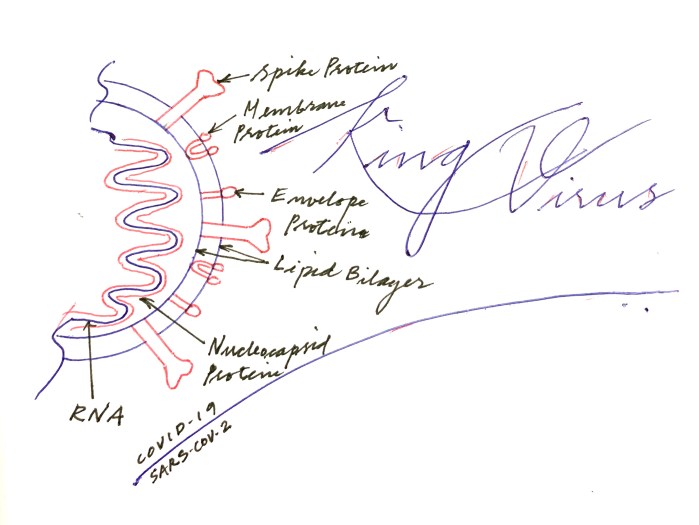 Spike Protein
Membrane
Protein
King Virus
Envelope
Protein
Lipid Bilayer
Nucleocapsid
Protein
RNA
COVID-19
SARS-COV-2